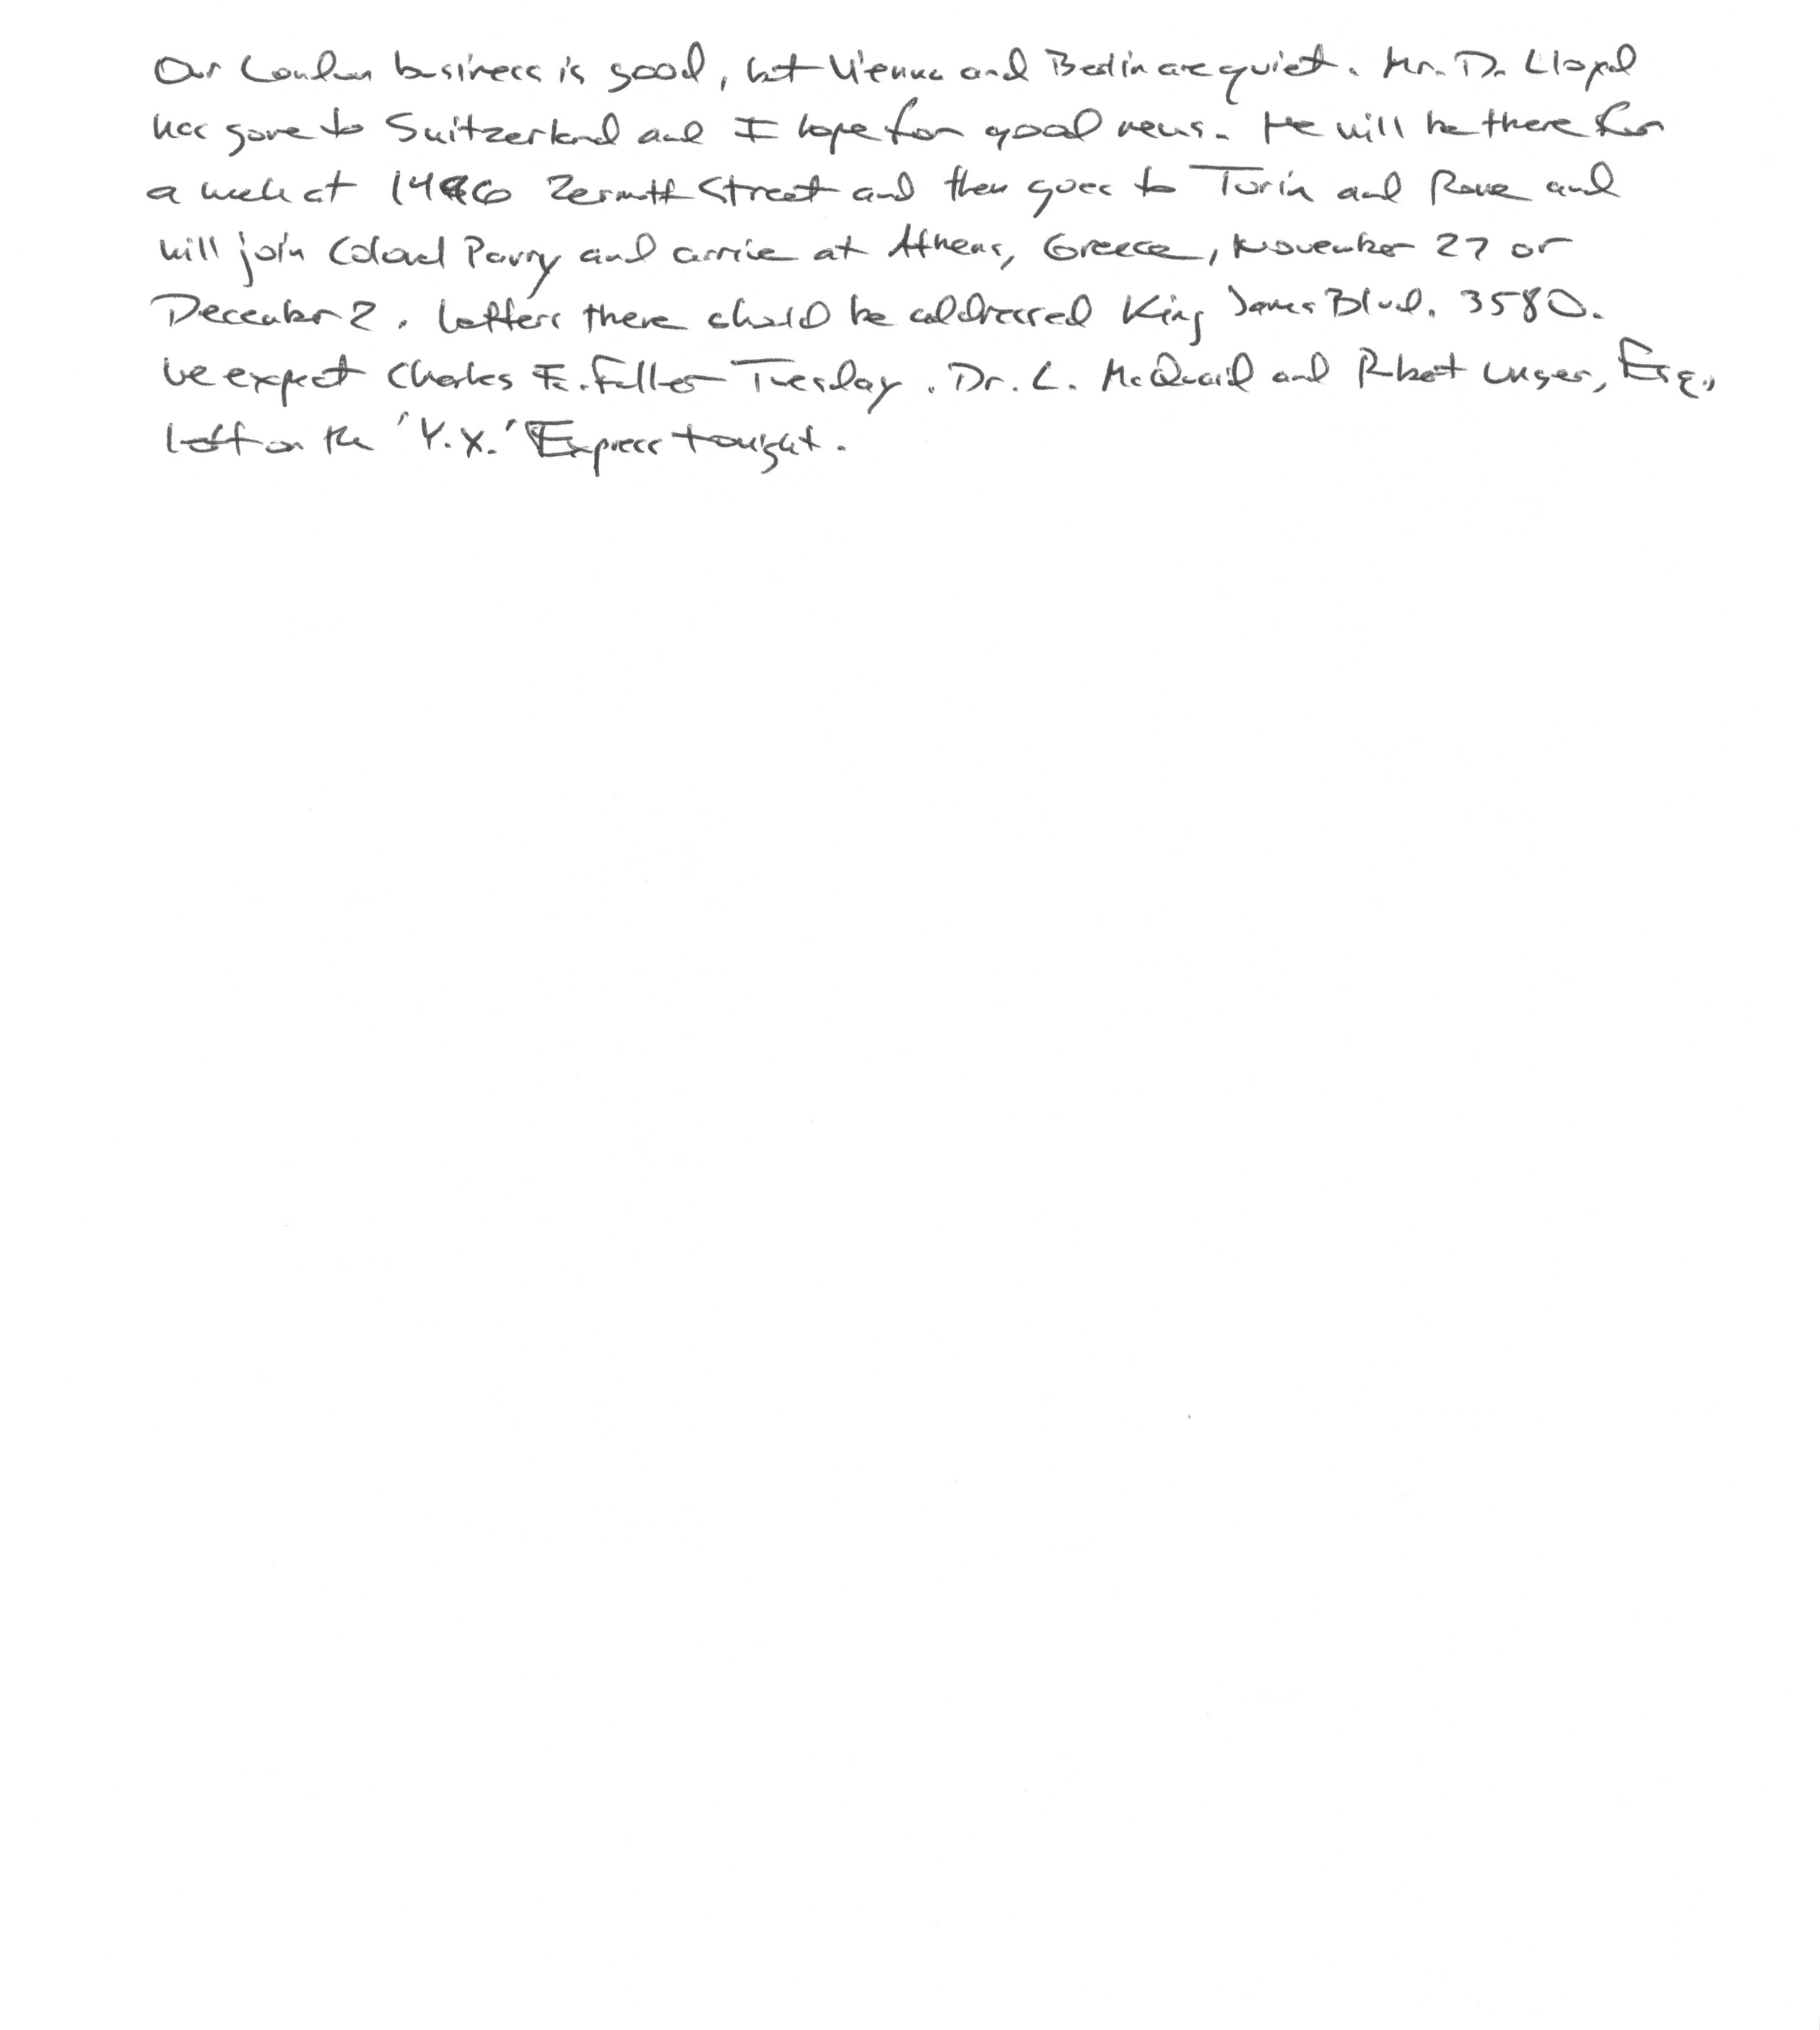 Our London business is good, but Vienna and Berlin are quiet. Mr. D. Lloyd
has gone to Switzerland and I hope for good news. He will be there for
a week at 1496 Zermott Street and then goes to Turin and Rome and
will join Colonel Parry and arrive at Athens, Greece, November 27 or
December 2. Letters there should be addressed King James Blvd. 3580.
We expect Charles E. Fuller Tuesday. Dr. L. McQuaid and Robert Unger, Esq.,
left on the 'Y.X.' Express tonight.